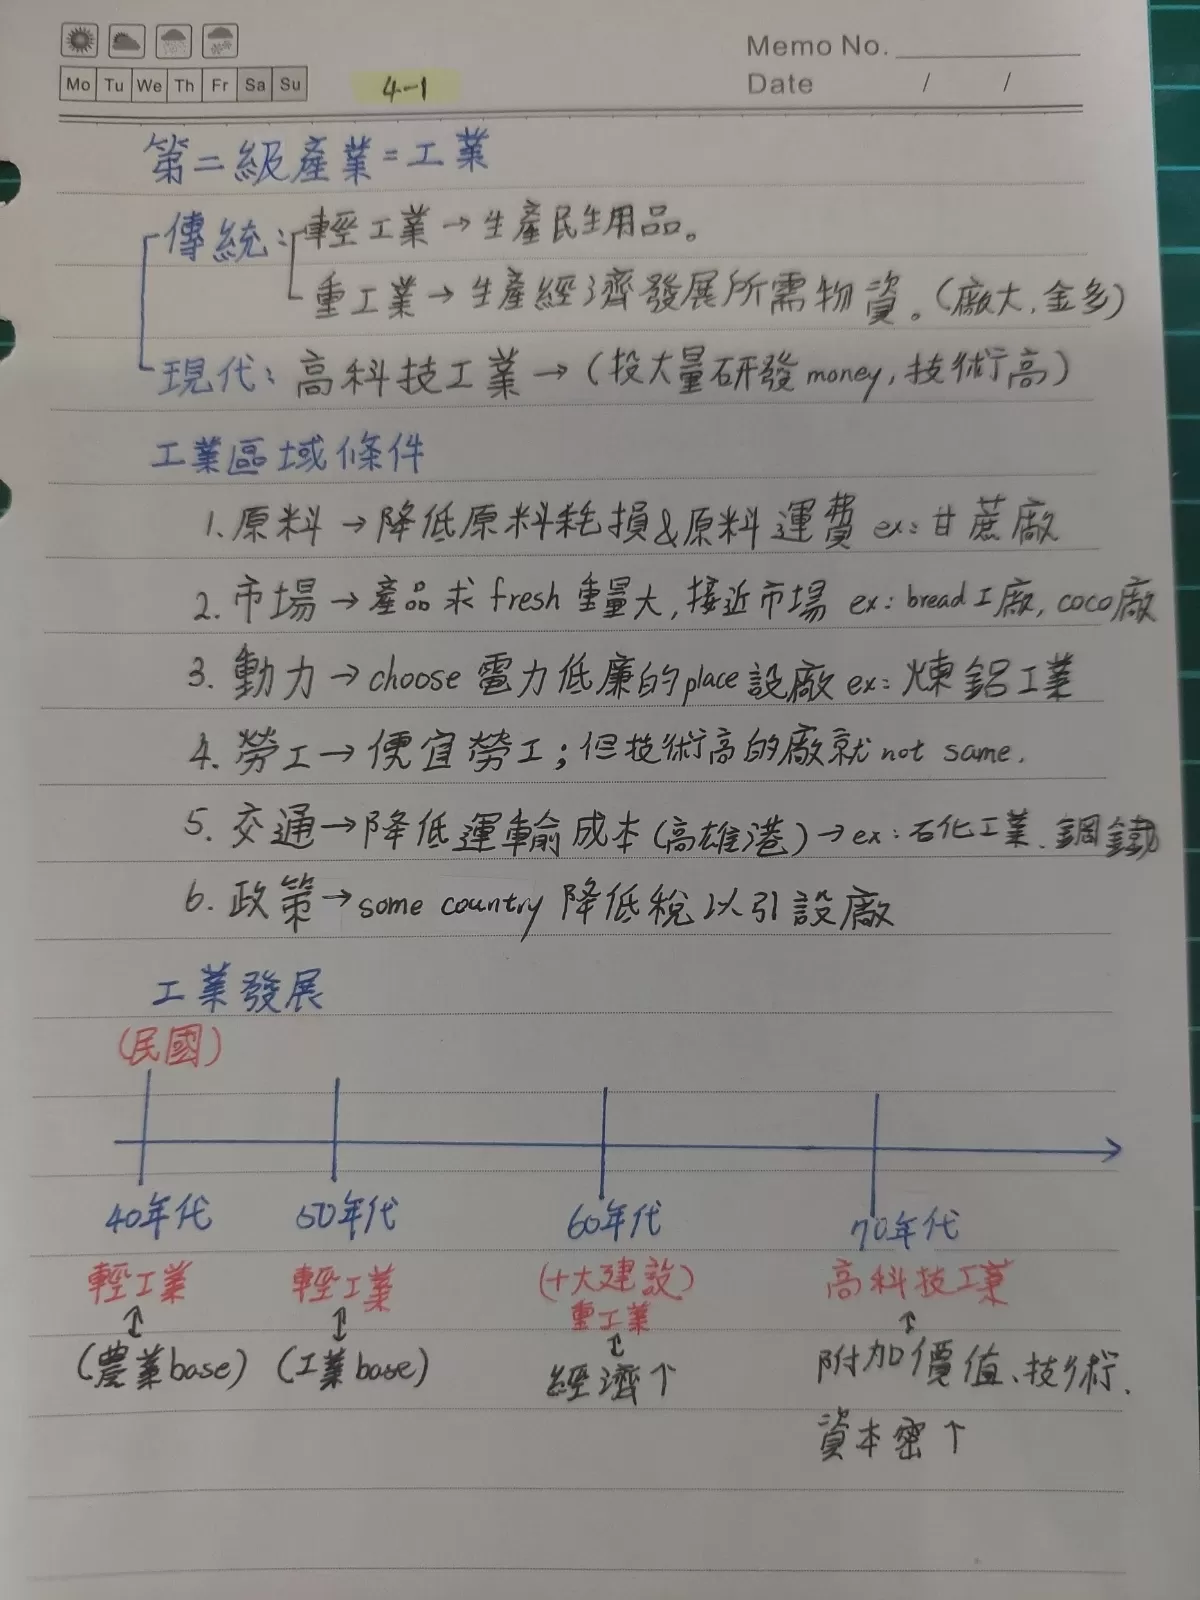 Memo No.
Mo Tu We Th Fr Sa Su
4-1
Date / /
第二級產業=工業
傳統:輕工業→生產民生用品。
重工業→生產經濟發展所需物資。(廠大,金多)
現代:高科技工業→(投大量研發money,技術高)
工業區域條件
1.原料→降低原料耗損&原料運費 ex:甘蔗廠
2.市場→產品求fresh重量大,接近市場 ex:bread工廠,coco廠
3.動力→choose電力低廉的place設廠 ex:煉鋁工業
4.勞工→便宜勞工;但技術高的廠就not same.
5.交通→降低運輸成本(高雄港)→ex:石化工業、鋼鐵
6.政策→some country降低稅以引設廠
工業發展
(民國)
40年代 50年代 60年代 70年代
輕工業 輕工業 (十大建設) 高科技工業
重工業
↕ ↕ ↕ ↕
(農業base) (工業base) 經濟↑ 附加價值、技術、
資本密↑